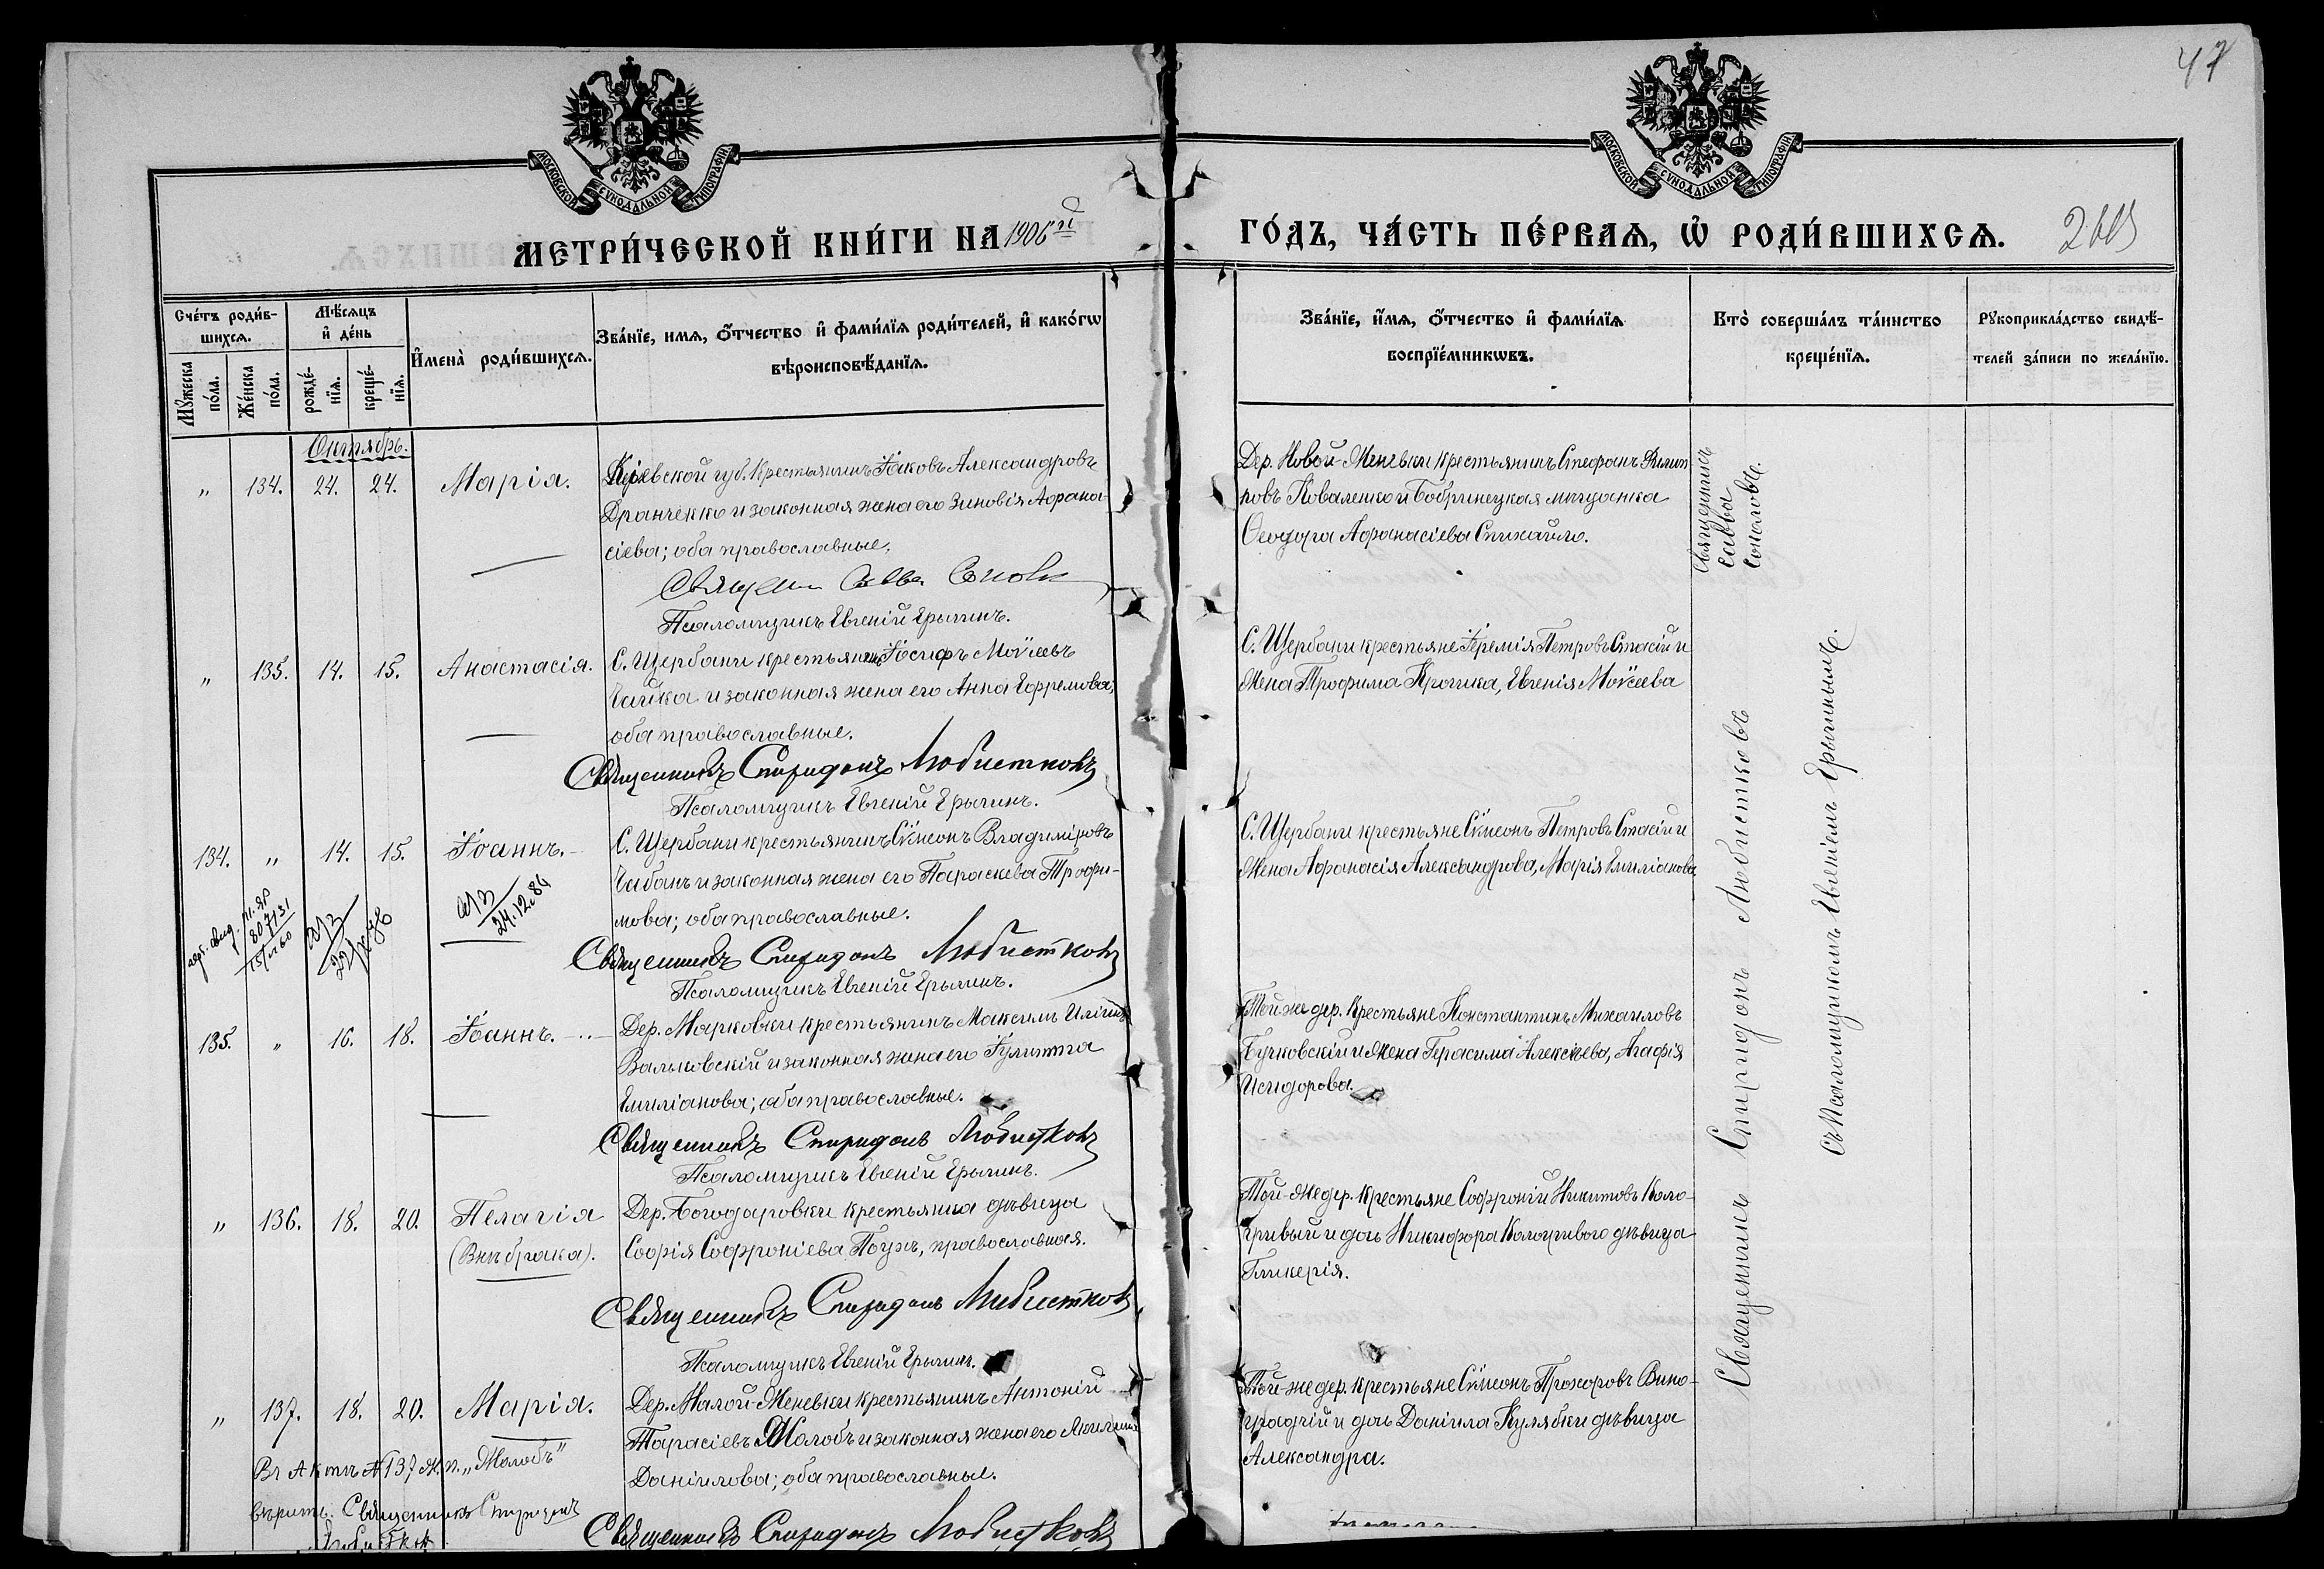 47
МОСКОВСКОЙ СѴНОДАЛЬНОЙ ТИПОГРАФІИ
МОСКОВСКОЙ СѴНОДАЛЬНОЙ ТИПОГРАФІИ
МЕТРИ́ЧЕСКОЙ КНИ́ГИ НА 1906й
ГО́ДЪ, ЧА́СТЬ ПЕ́РВАѦ, Ѡ РОДИ́ВШИХСѦ.
Сче́тъ роди́в-
шихсѧ.
Мꙋ́жеска
по́ла.
Же́нска
по́ла.
Мѣ́сѧцъ
и де́нь
рожде́-
нїѧ.
креще́-
нїѧ.
Имена̀ роди́вшихсѧ.
Зва́нїе, имѧ, ѻ́тчество и фами́лїѧ роди́телей, и како́гѡ
вѣроисповѣ́данїѧ.
Зва́нїе, и́мѧ, ѻ́тчество и фами́лїѧ
воспрїе́мникѡвъ.
Кто̀ соверша́лъ та́инство
креще́нїѧ.
Рꙋкоприкла́дство свидѣ́-
телей за́писи по жела́нїю.
Октябрь.
„ 134. 24. 24. Марія.
Кіевской губ. крестьянинъ Іаковъ Александровъ
Дранченко и законная жена его Зиновія Афана-
сіева; оба православные.
Псаломщикъ Евгеній Ерыгинъ.
Дер. Новой-Меневки крестьянинъ Стефанъ Филип
повъ Коваленко и Бобринецкая мѣщанка
Ѳеодора Афанасіева
Священникъ
Савва
Соколовъ.
„ 135. 14. 15. Анастасія.
С. Щербани крестьянинъ Іосифъ Моѵсеевъ
Чайка и законная жена его Анна Ефремова;
оба православные.
Священникъ Спиридонъ Любистковъ
Псаломщикъ Евгеній Ерыгинъ.
С. Щербани крестьяне Іеремія Петровъ Стасій и
жена Трофима Евгенія Моѵсеева
134. „ 14. 15. Іоаннъ.
С. Щербани крестьянинъ Сѵмеонъ Владиміровъ
Чабанъ и законная жена его Параскева Трофи-
мова; оба православные.
24.12.86
Священникъ Спиридонъ Любистковъ
Псаломщикъ Евгеній Ерыгинъ.
С. Щербани крестьяне Сѵмеонъ Петровъ Стасій и
жена Афанасія Александрова, Марія Емиліанова
135. „ 16. 18. Іоаннъ.
Дер. Марковки крестьянинъ Максимъ Иліинъ
Вальковскій и законная жена его Іулитта
Емиліанова; оба православные.
Священникъ Спиридонъ Любистковъ
Псаломщикъ Евгеній Ерыгинъ.
Той же дер. крестьяне Константинъ Михаиловъ
Бучковскій и жена Герасима Алексѣева, Агафія
Исидорова.
„ 136. 18. 20. Пелагія
(Внѣ брака).
Дер. Богодаровки крестьянка дѣвица
Софія Софроніева православная.
Священникъ Спиридонъ Любистковъ
Псаломщикъ Евгеній Ерыгинъ.
Той-же дер. крестьяне Софроній Никитовъ Коло-
гривый и дочь Никифора Кологривого дѣвица
Гликерія.
„ 137. 18. 20. Марія.
Дер. Малой-Меневки крестьянинъ Антоній
Тарасіевъ Жолобъ и законная жена его
Даніилова; оба православные.
Въ Актѣ № 137 ж. п. „Жолобъ"
вѣрить. Священникъ Спиридонъ
Любистковъ
Священникъ Спиридонъ Любистковъ
Той-же дер. крестьяне Сѵмеонъ Прохоровъ Вино-
градчій и дочь Даніила Кулябки дѣвица
Александра.
Священникъ Спиридонъ Любистковъ
съ Псаломщикомъ Евгеніемъ Ерыгинымъ.